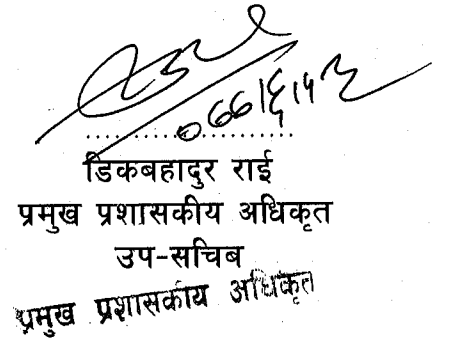 ०६६।६।१३
डिकबहादुर राई
प्रमुख प्रशासकीय अधिकृत
उप-सचिब
प्रमुख प्रशासकीय अधिकृत